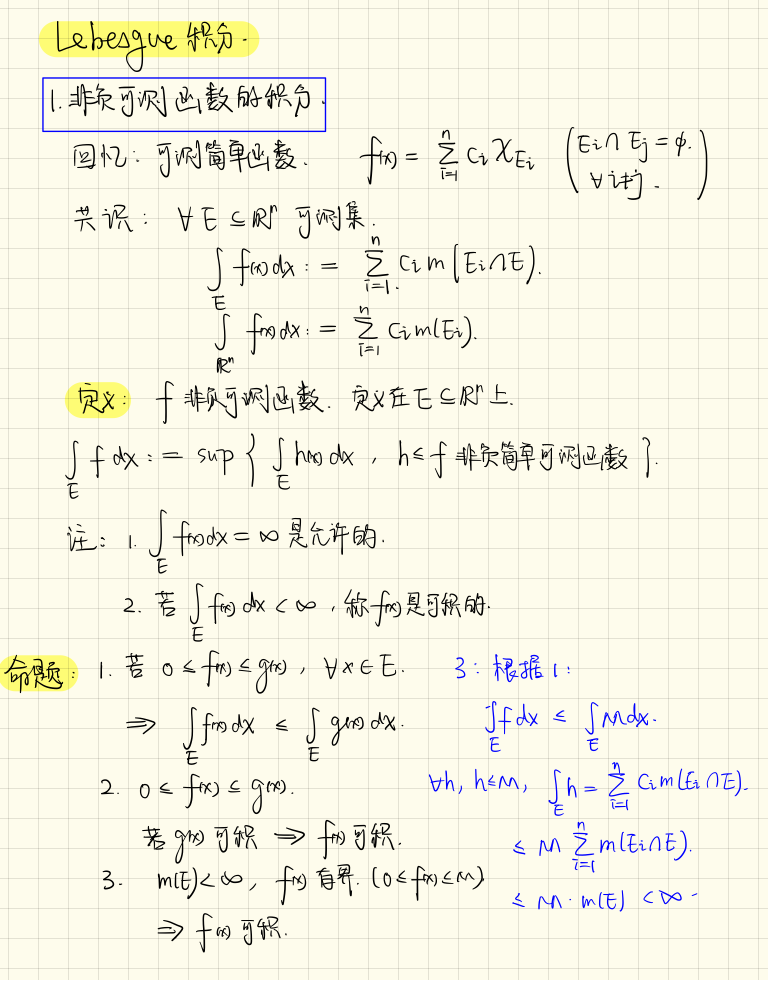 Lebesgue 积分.
1. 非负可测函数的积分.
回忆: 可测简单函数. f(x) = \sum_{i=1}^{n} C_i χ_{E_i} (E_i ∩ E_j = φ. ∀ i≠j.)
共识: ∀ E ⊆ ℝⁿ 可测集.
∫_E f(x) dx := \sum_{i=1}^{n} C_i m(E_i ∩ E).
∫_{ℝⁿ} f(x) dx := \sum_{i=1}^{n} C_i m(E_i).
定义: f 非负可测函数. 定义在 E ⊆ ℝⁿ 上.
∫_E f dx := sup { ∫_E h(x) dx , h ≤ f 非负简单可测函数 }.
注: 1. ∫_E f(x) dx = ∞ 是允许的.
2. 若 ∫_E f(x) dx < ∞ , 称 f(x) 是可积的.
命题: 1. 若 0 ≤ f(x) ≤ g(x) , ∀ x ∈ E.
⇒ ∫_E f(x) dx ≤ ∫_E g(x) dx.
2. 0 ≤ f(x) ≤ g(x).
若 g(x) 可积 ⇒ f(x) 可积.
3. m(E) < ∞ , f(x) 有界. (0 ≤ f(x) ≤ M)
⇒ f(x) 可积.
3: 根据 1:
∫_E f dx ≤ ∫_E M dx.
∀h, h ≤ M, ∫_E h = \sum_{i=1}^{n} C_i m(E_i ∩ E).
≤ M \sum_{i=1}^{n} m(E_i ∩ E).
≤ M · m(E) < ∞.